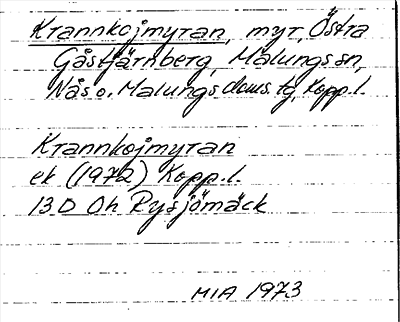 Krannkojmyran, myr, Östra
Gåstjärnberg, Malungs sn,
Nås o. Malungs doms. tg, Kopp. l.
Krannkojmyran
ek (1972) Kopp. l.
13 D Oh Rysjömäck
MIA 1973